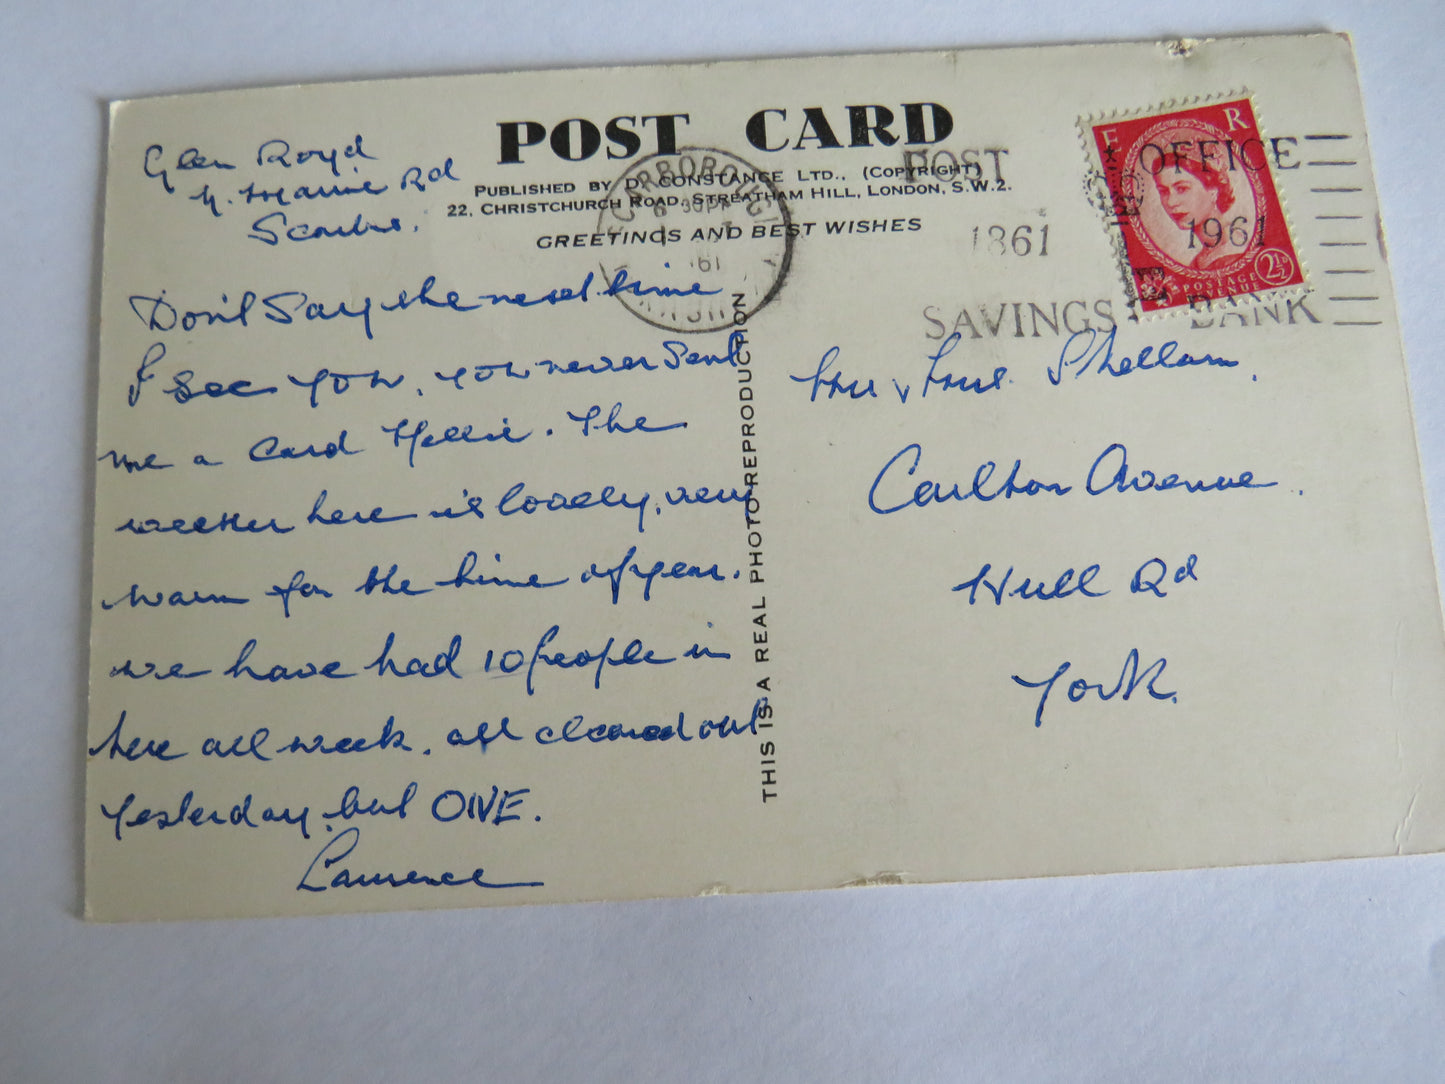 POST CARD
PUBLISHED BY D. CONSTANCE LTD., (COPYRIGHT)
22, CHRISTCHURCH ROAD, STREATHAM HILL, LONDON, S.W.2.
GREETINGS AND BEST WISHES
SCARBOROUGH
6 30PM
1961
POST OFFICE
1861 1961
SAVINGS BANK
E R
2½D
POSTAGE
REVENUE
Glen Royd
N. Marine Rd
Scarbro.
Don't Say the next time
I see you, you never Sent
me a Card Nellie. The
weather here is lovely, very
warm for the time of year.
we have had 10 people in
here all week. all cleared out
Yesterday, but ONE.
Laurence
THIS IS A REAL PHOTO REPRODUCTION
Shellam,
Carlton Avenue.
Hull Rd
York.